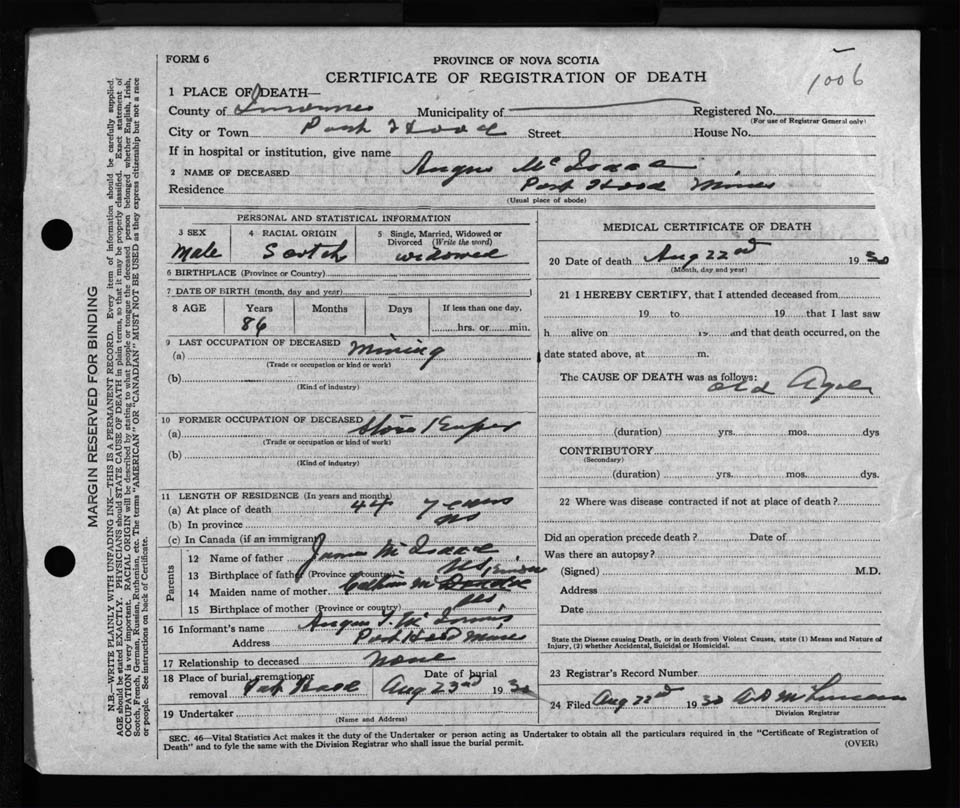 FORM 6
PROVINCE OF NOVA SCOTIA
CERTIFICATE OF REGISTRATION OF DEATH
1006
1 PLACE OF DEATH—
County of Inverness Municipality of Registered No.
(For use of Registrar General only)
City or Town Port Hood Street House No.
If in hospital or institution, give name
2 NAME OF DECEASED Angus McIsaac
Residence Port Hood Mines
(Usual place of abode)
PERSONAL AND STATISTICAL INFORMATION
3 SEX 4 RACIAL ORIGIN 5 Single, Married, Widowed or Divorced (Write the word)
Male Scotch widowed
6 BIRTHPLACE (Province or Country)
7 DATE OF BIRTH (month, day and year)
8 AGE Years Months Days If less than one day,
86 hrs. or min.
9 LAST OCCUPATION OF DECEASED Mining
(a)
(Trade or occupation or kind or work)
(b)
(Kind of industry)
10 FORMER OCCUPATION OF DECEASED
(a)
(Trade or occupation or kind of work)
(b)
(Kind of industry)
11 LENGTH OF RESIDENCE (In years and months)
(a) At place of death 44 years
(b) In province
(c) In Canada (if an immigrant)
Parents
12 Name of father James McIsaac
13 Birthplace of father (Province or country)
14 Maiden name of mother
15 Birthplace of mother (Province or country)
16 Informant's name Angus
Address Port Hood Mines
17 Relationship to deceased None
18 Place of burial, cremation or removal Port Hood Date of burial Aug 23rd 1930
19 Undertaker
(Name and Address)
MEDICAL CERTIFICATE OF DEATH
20 Date of death Aug 22nd 1930
(Month, day and year)
21 I HEREBY CERTIFY, that I attended deceased from
19 to 19 that I last saw
h alive on 19 and that death occurred, on the
date stated above, at m.
The CAUSE OF DEATH was as follows:
old Age
(duration) yrs. mos. dys
CONTRIBUTORY
(Secondary)
(duration) yrs. mos. dys.
22 Where was disease contracted if not at place of death?
Did an operation precede death? Date of
Was there an autopsy?
(Signed) M.D.
Address
Date
State the Disease causing Death, or in death from Violent Causes, state (1) Means and Nature of
Injury, (2) whether Accidental, Suicidal or Homicidal.
23 Registrar's Record Number
24 Filed Aug 22nd 1930
Division Registrar
SEC. 46—Vital Statistics Act makes it the duty of the Undertaker or person acting as Undertaker to obtain all the particulars required in the "Certificate of Registration of
Death" and to fyle the same with the Division Registrar who shall issue the burial permit.
(OVER)
MARGIN RESERVED FOR BINDING
N.B.—WRITE PLAINLY WITH UNFADING INK—THIS IS A PERMANENT RECORD. Every item of information should be carefully supplied.
AGE should be stated EXACTLY. PHYSICIANS should STATE CAUSE OF DEATH in plain terms, so that it may be properly classified. Exact statement of
OCCUPATION is very important. RACIAL ORIGIN will be described by stating to what people or tongue the deceased person belonged whether English, Irish,
Scotch, French, German, Russian, Ruthenian, etc. The terms "AMERICAN" OR "CANADIAN" MUST NOT BE USED as they express citizenship but not a race
or people. See instructions on back of Certificate.